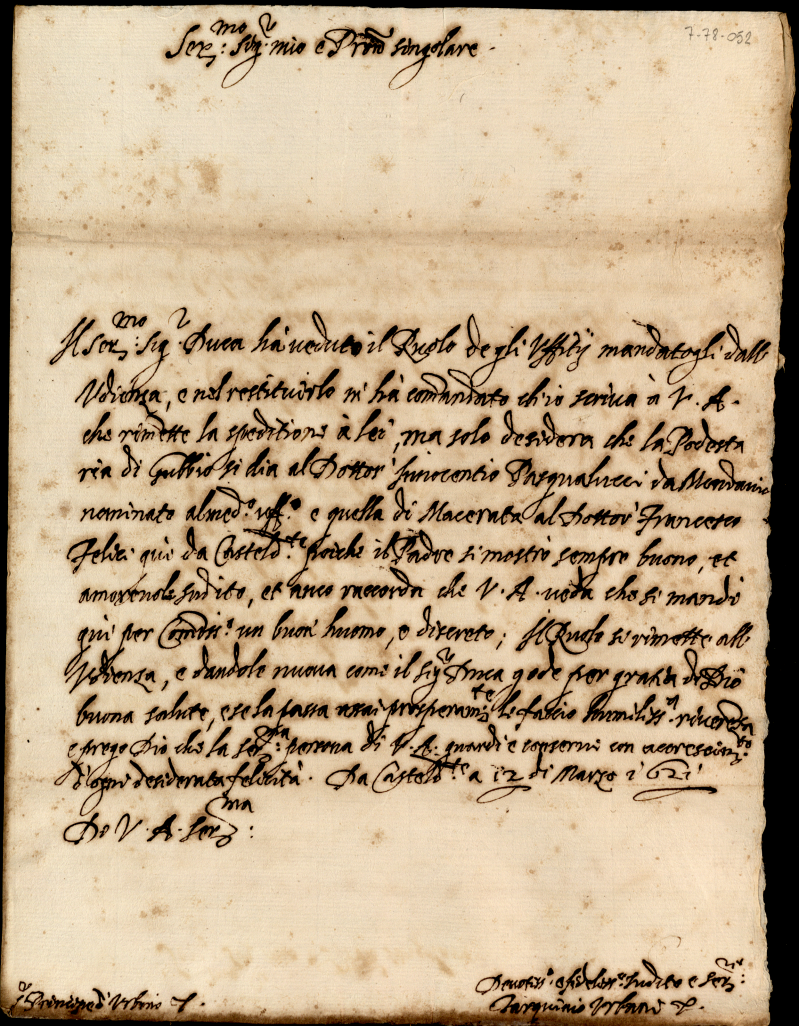 7-78-052
Ser.mo Sig.r mio e Pron singolare.
Il Ser.mo Sig.r Duca hà veduto il Ruolo degli Uffitij mandatogli dall
Udienza, e nel restituirlo m'hà comandato ch'io scriva à V. A.
che rimette la speditione à lei, ma solo desidera che la Podesta
ria di Gubbio si dia al Dottor Innocentio Pasqualucci da Mondavio
nominato al med.o uff.o e quella di Macerata al Dottor Francesco
Felici qui da Casteld.te poiche il Padre si mostrò sempre buono, et
amorevole sudito, et anco raccorda che V. A. veda che si mandi
qui per Comiss.o un buon huomo, e discreto; Il Ruolo si rimette all
Udienza, e dandole nuova come il Sig.r Duca gode per gratia di Dio
buona salute, e se la passa assai prosperam.te le faccio humiliss.a riverenza
e prego Dio che la Ser.ma persona di V. A. guardi e conservi con accrescim.to
d'ogni desiderata felicità. Da Casteld.te a 12 di Marzo 1621
Di V. A. Ser.ma
Devotiss.o e fideliss.o sudito e Ser.re
S.r Principe d'Urbino
Tarquinio Urbani